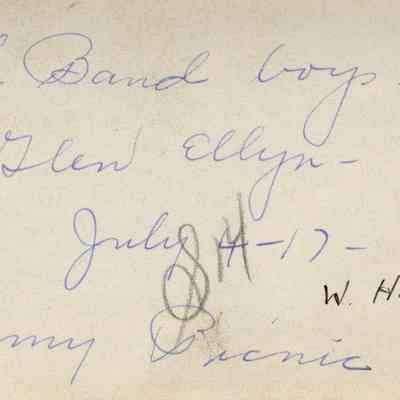 Band boys.
Glen Ellyn-
July 4-17-
SM
W. H.
my Picnic